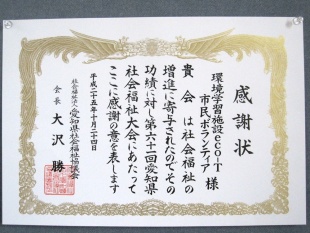 感謝状
環境学習施設eco-T
市民ボランティア 様
貴会は社会福祉の
増進に寄与されたのでその
功績に対し第六十一回愛知県
社会福祉大会にあたって
ここに感謝の意を表します
平成二十五年十月二十四日
社会福祉法人 愛知県社会福祉協議会
会長 大沢 勝